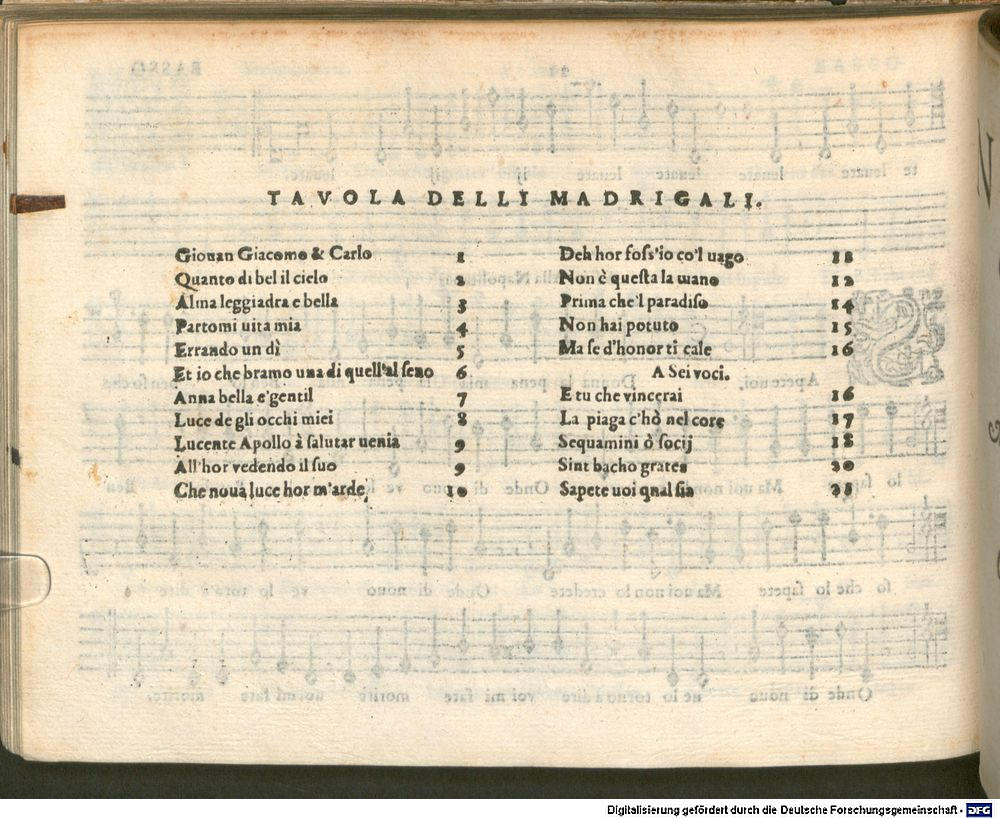 TAVOLA DELLI MADRIGALI.
Giouan Giacomo & Carlo 1
Quanto di bel il cielo 2
Alma leggiadra e bella 3
Partomi uita mia 4
Errando un dì 5
Et io che bramo una di quell'al seno 6
Anna bella e'gentil 7
Luce de gli occhi miei 8
Lucente Apollo à salutar uenia 9
All'hor vedendo il suo 9
Che noua luce hor m'arde 10
Deh hor foss'io co'l uago 11
Non è questa la mano 12
Prima che'l paradiso 14
Non hai potuto 15
Ma se d'honor ti cale 16
A Sei voci.
E tu che vincerai 16
La piaga c'hò nel core 17
Sequamini ò socij 18
Sint bacho grates 20
Sapete uoi qual sia 21
Digitalisierung gefördert durch die Deutsche Forschungsgemeinschaft - DFG